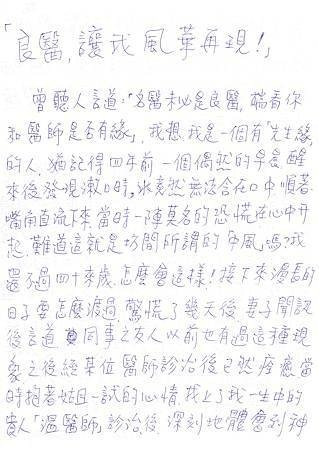 「良醫，讓我風華再現！」
曾聽人言道：「名醫未必是良醫，端看你
和醫師是否有緣」，我想，我是一個有「先生緣」
的人，猶記得四年前一個偶然的早晨，醒
來後發現漱口時，水竟然無法含在口中，順著
嘴角直流下來，當時一陣莫名的恐慌在心中升
起，難道這就是坊間所謂的「中風」嗎？我
還不過四十來歲，怎麼會這樣！接下來漫長的
日子要怎麼渡過，驚慌了幾天後，妻子聞訊
後言道，其同事之友人以前也有過這種現
象之後經某位醫師診治後已然痊癒，當
時抱著姑且一試的心情，找上了我一生中的
貴人「溫醫師」，診治後，深刻地體會到神